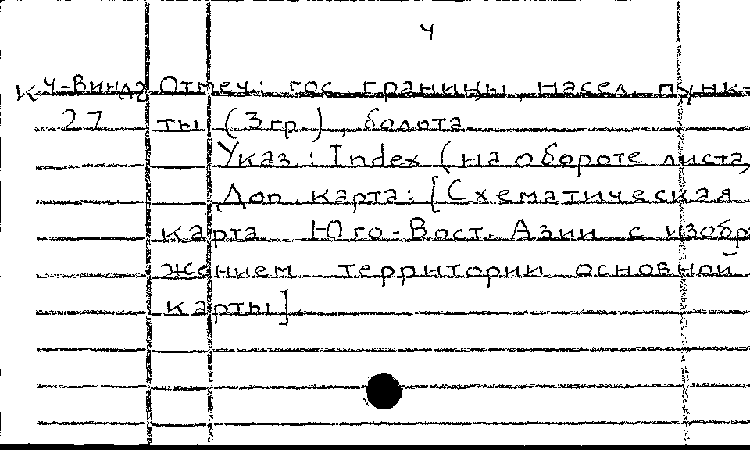 4
К ч-Винд2 Отмеч.: гос. границы, насел. пунк-
27 ты (3гр.), болота.
Указ.: Index (на обороте листа)
Доп. карта: [Схематическая
карта Юго-Вост. Азии с изобр
жением территории основной
карты].